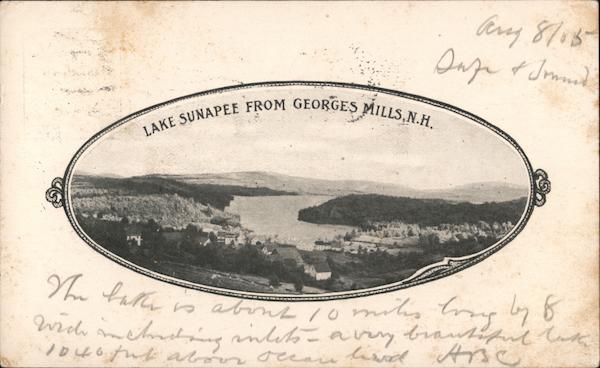 Aug 8/05
Safe & Sound
LAKE SUNAPEE FROM GEORGES MILLS, N.H.
The lake is about 10 miles long by 8
wide including inlets - a very beautiful lake
1040 feet above ocean level HBC